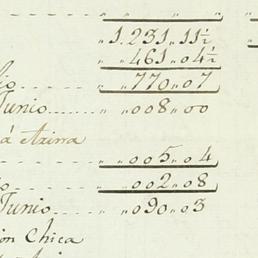 1.231,,11½
,,461,,04½
,,770,,07
Junio ,,008,,00
á Azirra
,,005,,4
,,002,,8
Junio ,,090,,3
ion Chica